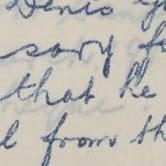 Denis
sary f
that he
l from th